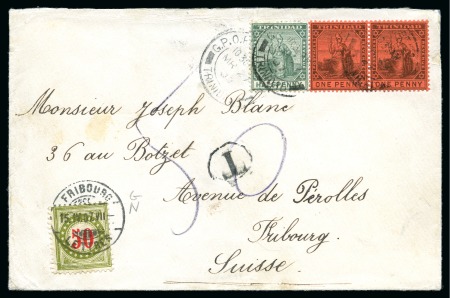 G.P.O.
TRINIDAD TRINIDAD
HALFPENNY ONE PENNY ONE PENNY
Monsieur Joseph Blanc
50
T
36 au Botzet
FRIBOURG
Avenue de Pérolles
G
N
50
Fribourg.
Suisse.